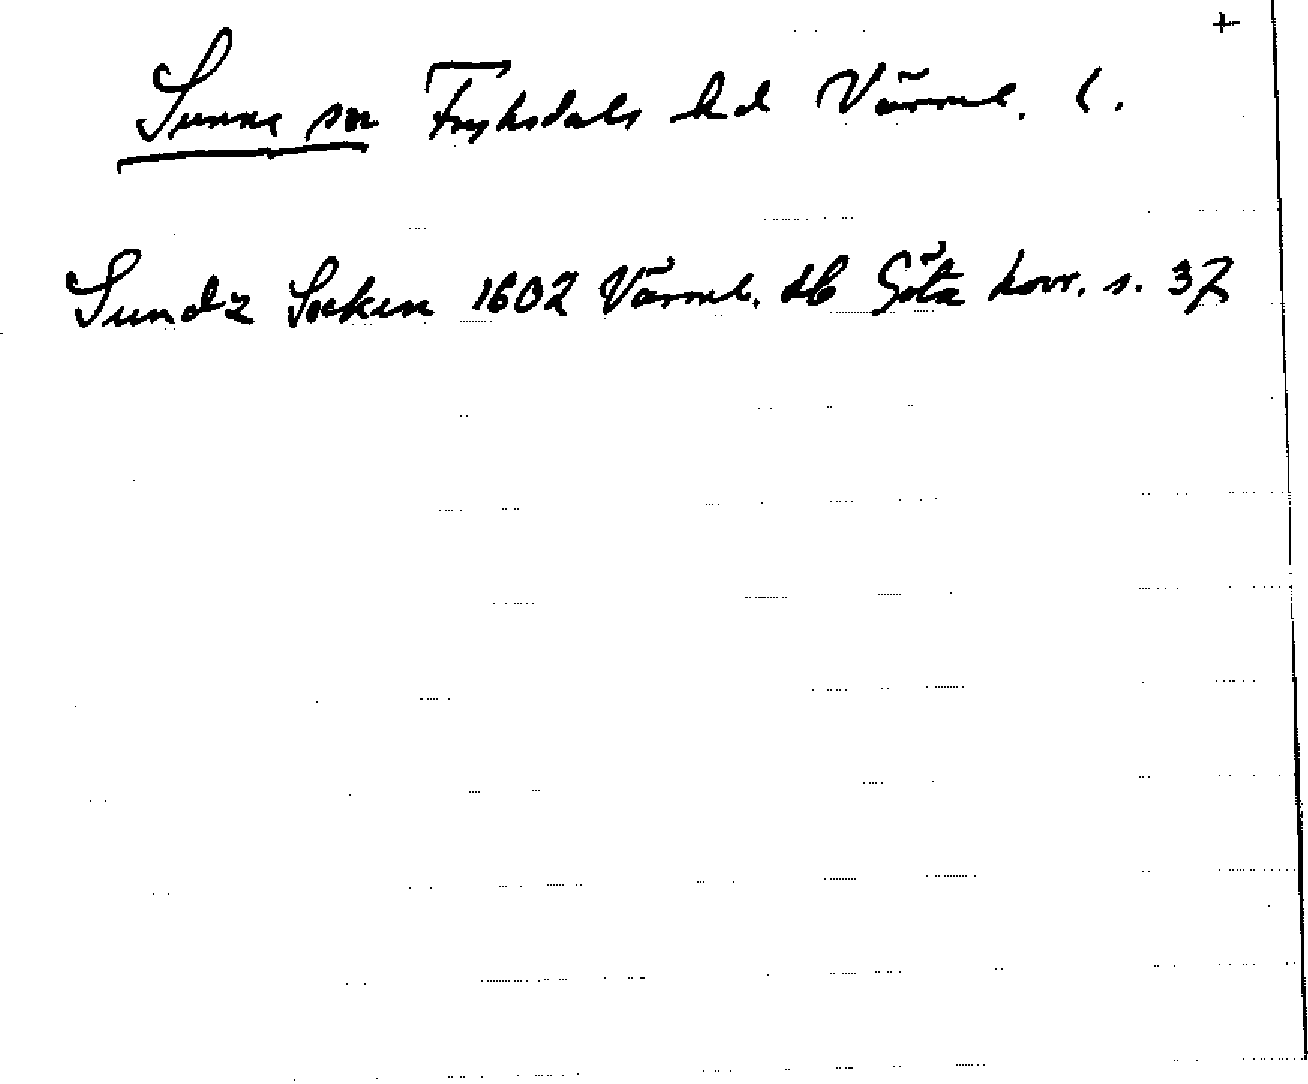 +
Sunne sn Fryksdals hd Värml. l.
Sundz Socken 1602 Värml. db Göta hovr. s. 37